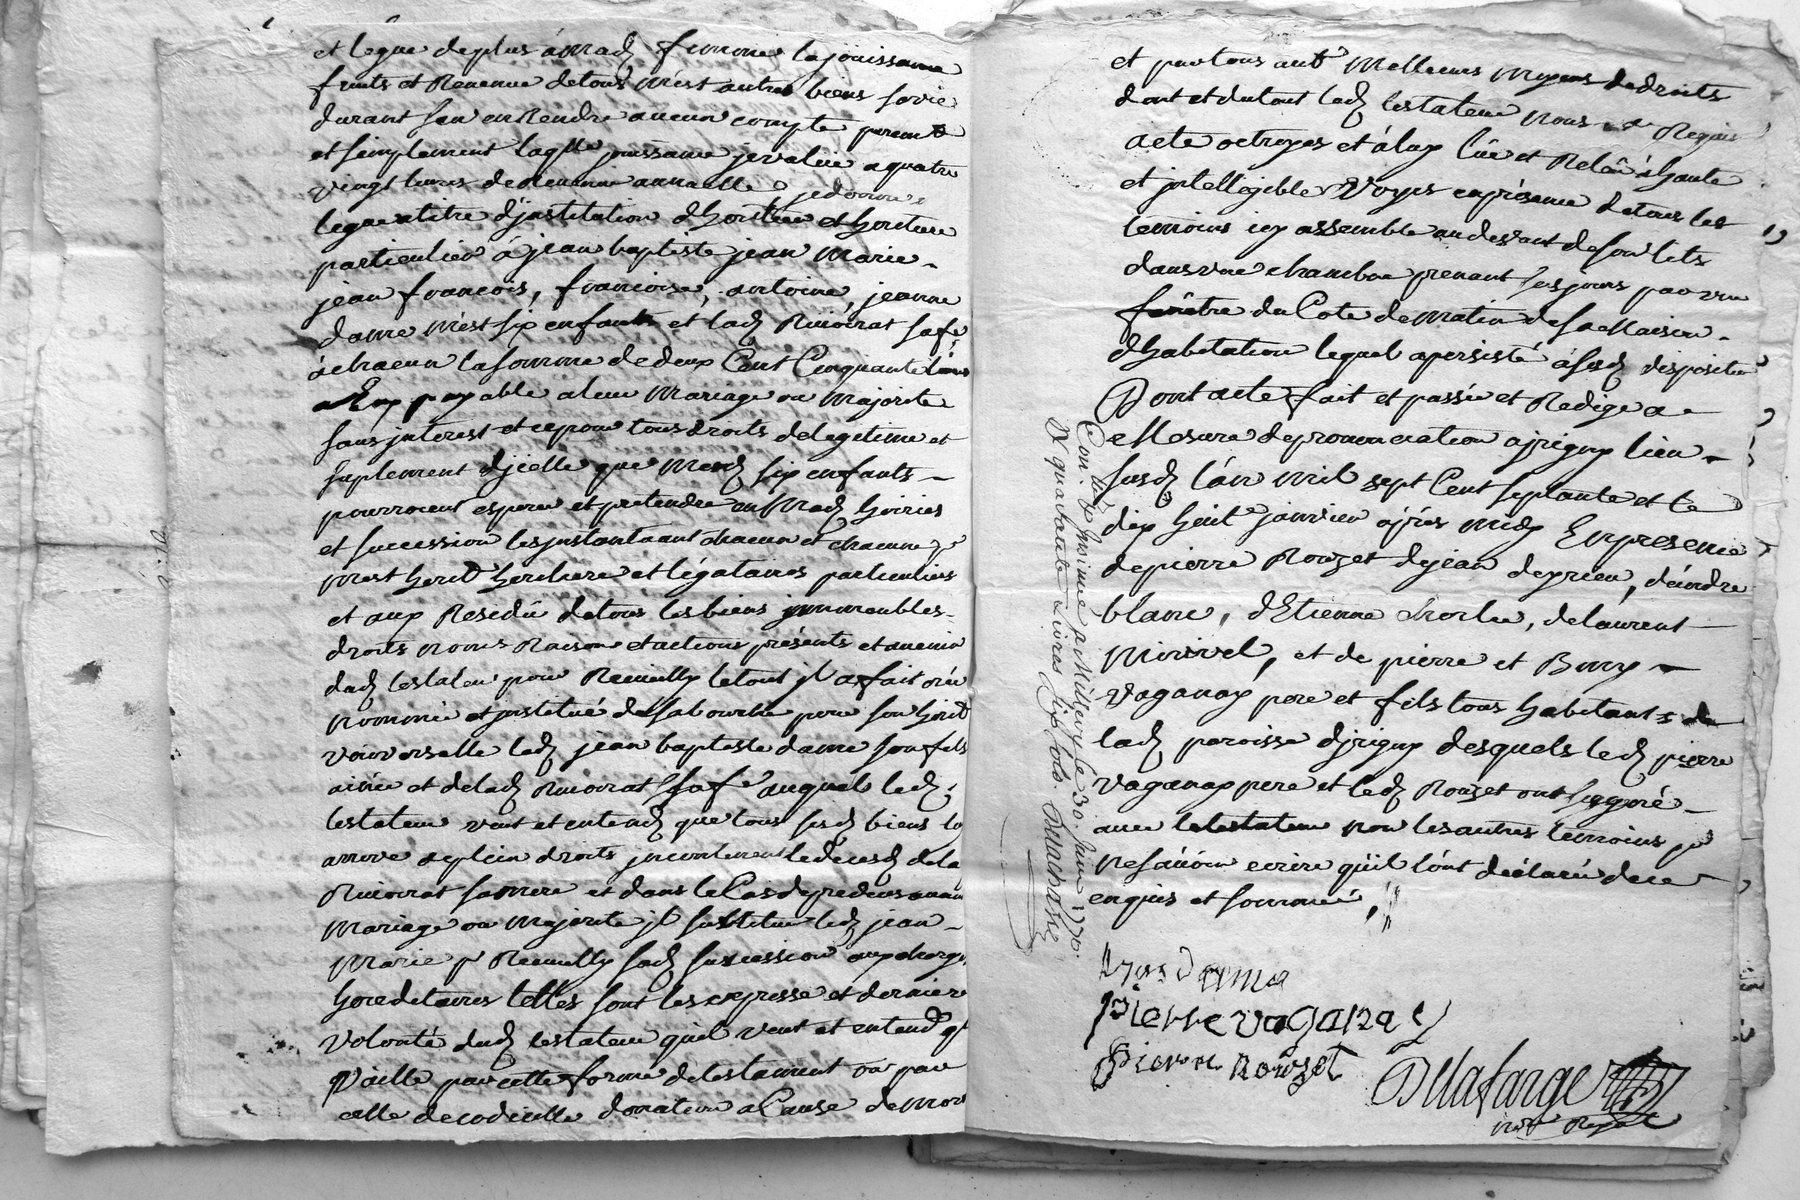 et legue de plus à mad femme la jouissance
fruits et Revenue de tous mest autres biens sa vie
durant san en Rendre aucun compte purem
et simplement laqlle jouissance jevalue a quatre
vingt livres de Revenue annuelle je donne
legue atitre d'jnstitution dhoritier et horitiere
particulier à jean baptiste jean Marie
jean francois, francoise, antoine, jeanne
dame mest six enfants et lad Rivoirat sa fe
à chacun la somme de deux Cent Cinquante livres
payable a leur Mariage ou Majorite
sans jnterest et ce pour tous droits delegetime et
suplement djcelle que Mesd six enfants
pourroient esperer et pretendre en Mad hoiries
et succession les jnstantaant chacun et chacune p
mest herit heritiere et légataires particuliers
et aux Residu de tous les biens jmmeubles
droits noms Raisons et actions présents et avenir
dud testateur pour Recuilly le tout jl a fait crée
nommé et jnstitué de sa bouche pour son hérit
vuniverselle led jean baptiste dame son fils
ainée et delad Rivoirat sa fe auquels led
testateur veut et entend que tous sesd biens luy
arrive de plein droits jncontinent le deced de la
Rivoirat sa mere et dans le Cas de predeces avant
Mariage ou Majorite jl substitue led jean
Marie pr Recuilly sad succession aux charges
hereditaires telles sont les expresse et derniere
volonté dud testateur quil veut et entend q
vaille par cette forme de testament ou par
celle de codicille donation a Cause de mort
et par tous aut Meilleurs Moyens de droits
dont et du tout led testateur nous a Requis
acte octroyes et à luy lue et Relue à haute
et jntelligible Voyes en présence de tous les
témoins icy assemble au devant de son lits
dans une chambre prenant ses jours par une
fenêtre du Coté de matin de sa Maison
dhabitation lequel a persisté à sesd disposition
Dont acte fait et passé et Redige a
Mesure de prononciation a jrigny lieu
susd l'an mil sept Cent septante et le
dix huite janvier après midy En presence
de pierre Rouzet de jean deprieu, d'andre
blanc, d'Etienne, de laurent
et de pierre et
vaganay pere et fils tous habitants de
lad paroisse djrigny desquels led pierre
vaganay pere et led Rouzet ont signé
avec le testateur non les autres temoins p
ne sávoir ecrire qu'il l'ont déclaré de ce
enquis et sommé,
Dame
Pierre vaganay
Pierre Rouzet
Dellafarge
not Royal
Con. lé & jnsinué a Millery le 30. janv. 1770.
R quarante livres six sols.